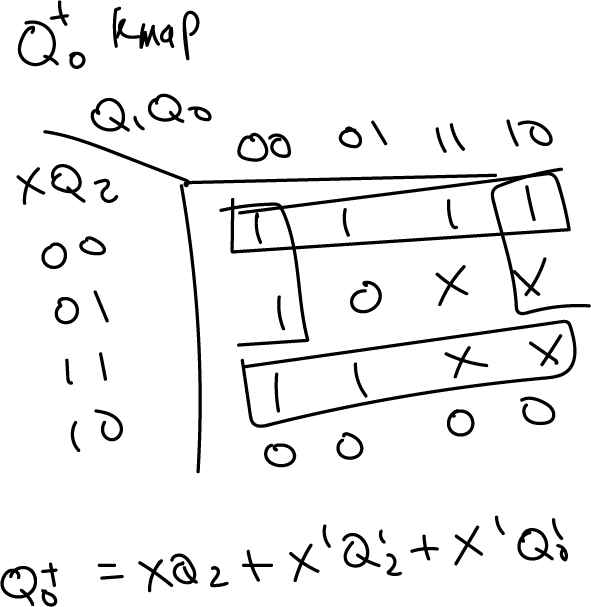 Q₀⁺ kmap
Q₁Q₀
XQ₂ 00 01 11 10
00 1 1 1 1
01 1 0 X X
11 1 1 X X
10 0 0 0 0
Q₀⁺ = XQ₂ + X'Q₂' + X'Q₀'